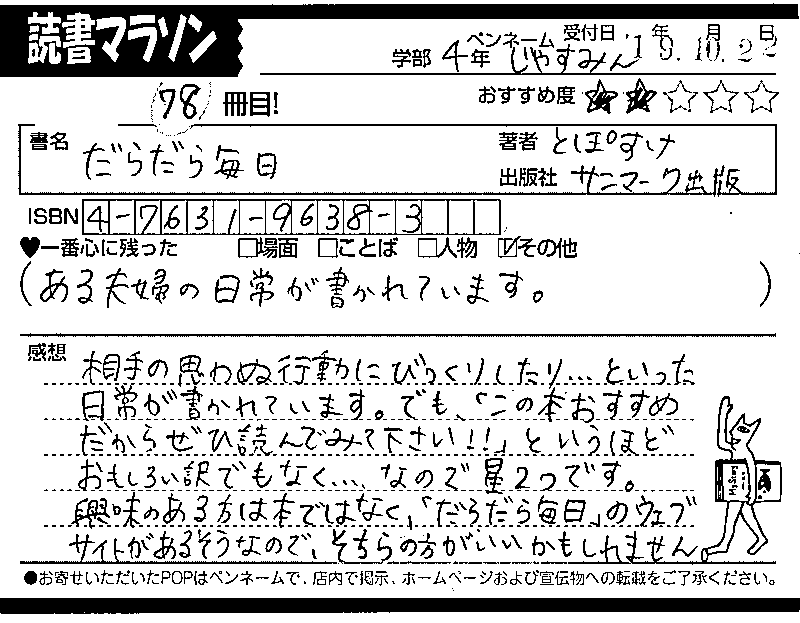 読書マラソン
学部 4年 ペンネーム じゃすみん 受付日 '19年.10月.22日
78 冊目! おすすめ度 ★★☆☆☆
書名 だらだら毎日 著者 とぽすけ
出版社 サンマーク出版
ISBN 4-7631-9638-3
♥一番心に残った □場面 □ことば □人物 ☑その他
(ある夫婦の日常が書かれています。)
感想
相手の思わぬ行動にびっくりしたり…といった
日常が書かれています。でも、「この本おすすめ
だからぜひ読んでみて下さい!!」というほど
おもしろい訳でもなく…、なので星2つです。
興味のある方は本ではなく、「だらだら毎日」のウェブ
サイトがあるそうなので、そちらの方がいいかもしれません。
●お寄せいただいたPOPはペンネームで、店内で掲示、ホームページおよび宣伝物への転載をご了承ください。